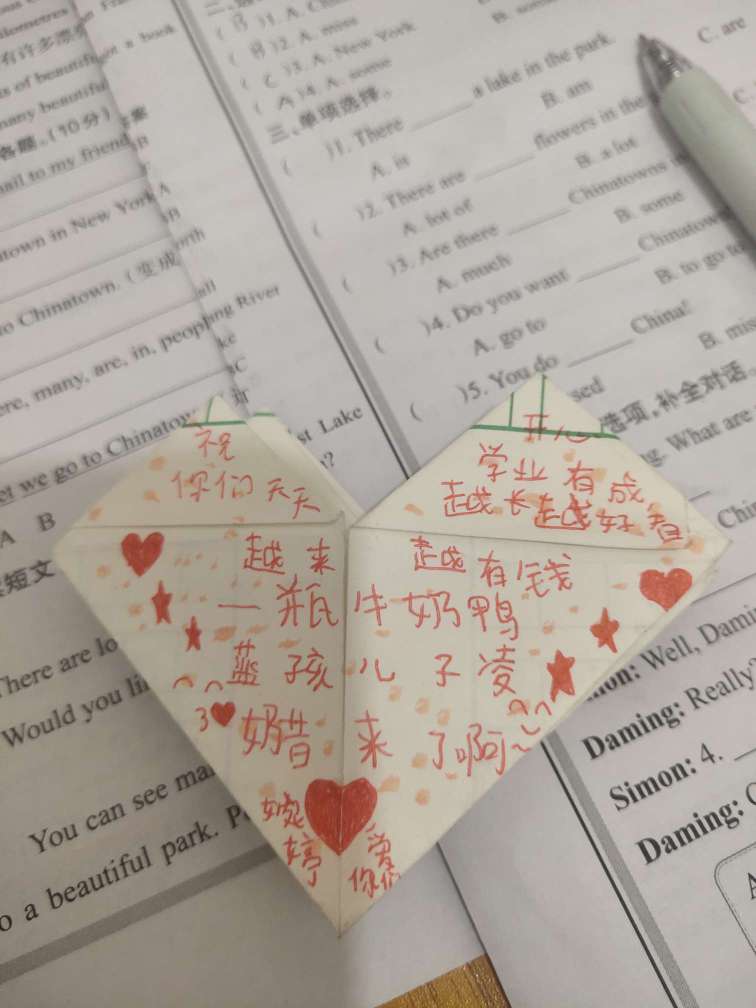 ilometres
有许多漂亮
s of beautiful
t a book
many beautiful
各题。(10分)
ail to my friend
town in New York
o Chinatown. (变成
ere, many, are, in, people
ng River
et we go to Chinatow
st Lake
A B
短文
There are lo
Would you li
You can see ma
o a beautiful park.
( B )1. A. Chin
( B )2. A. miss
( C )3. A. New York
( A )4. A. some
三、单项选择。
( )1. There ______ a lake in the park.
A. is B. am C. are
( )2. There are ______ flowers in the
A. lot of B. a lot
( )3. Are there ______ Chinatowns
A. much B. some
( )4. Do you want ______ Chinatow
A. go to B. to go to
( )5. You do ______ China!
sed B. mis
选项,补全对话。
g. What are
祝 开心
你们天天 学业有成
越长越好看
越来 越有钱
一瓶牛奶鸭
蓝孩儿子凌
3 奶昔来了啊~
婉婷 爱你们
mon: Well, Damin
Daming: Really?
Simon: 4. ___
Daming: